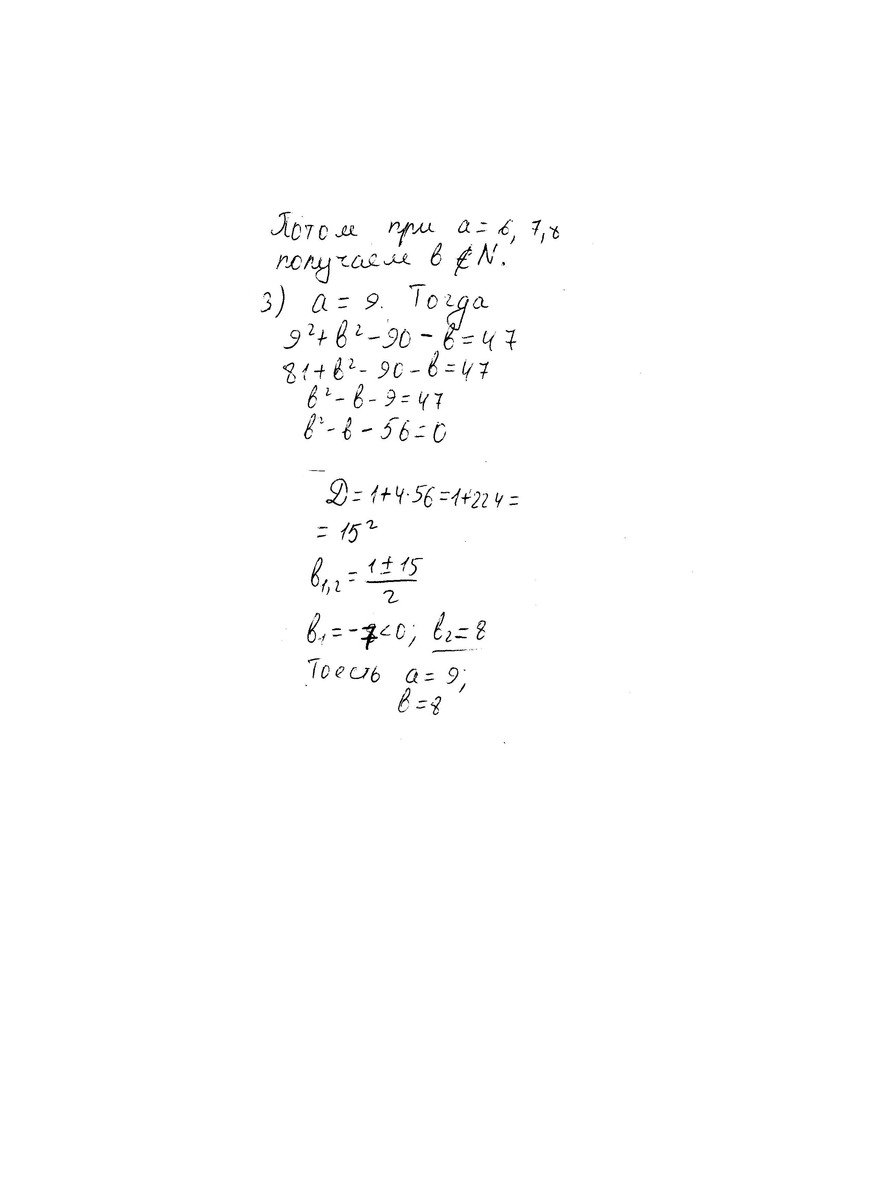 Потом при a = 6, 7, 8
получаем в ∉ N.
3) a = 9. Тогда
9² + в² - 90 - в = 47
81 + в² - 90 - в = 47
в² - в - 9 = 47
в² - в - 56 = 0
D = 1 + 4·56 = 1 + 224 =
= 15²
в₁,₂ = (1 ± 15)/2
в₁ = -7 < 0; в₂ = 8
Тоесть a = 9;
в = 8